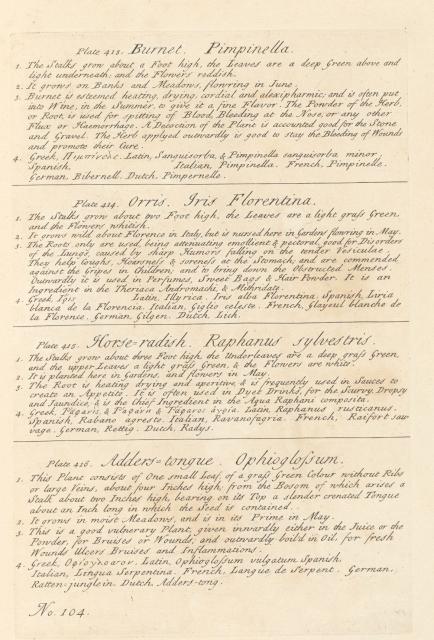 Plate 413. Burnet. Pimpinella.
1. The Stalks grow about a Foot high, the Leaves are a deep Green above and
light underneath; and the Flowers reddish.
2. It grows on Banks and Meadows, flowring in June,
3. Burnet is esteemed heating, drying, cordial and alexipharmic; and is often put
into Wine, in the Summer, to give it a fine Flavor. The Powder of the Herb,
or Root, is used for spitting of Blood, Bleeding at the Nose, or any other
Flux or Haemorrhage. A Decoction of the Plant is accounted good for the Stone
and Gravel. The Herb applyed outwardly is good to stay the Bleeding of Wounds
and promote their Cure.
4. Greek, Latin, Sanguisorba, & Pimpinella sanguisorba minor,
Spanish, Italian, Pimpinella. French, Pimpinelle.
German, Bibernell. Dutch, Pimpernelle.
Plate 414. Orris. Iris Florentina.
1. The Stalks grow about two Foot high, the Leaves are a light graſs Green,
and the Flowers whitish.
2. It grows wild about Florence in Italy, but is nursed here in Gardens flowring in May.
3. The Roots only are used, being attenuating emollient & pectoral, good for Disorders
of the Lungs, caused by sharp Humors falling on the tender Vesiculae.
They help Coughs, Hoarsneſs & soreneſs at the Stomach, and are commended
against the Gripes in Children; and to bring down the Obstructed Menses.
Outwardly it is used in Perfumes, Sweet Bags & Hair Powder. It is an
Ingredient in the Theriaca Andromachi, & Mithridate.
4. Greek, Latin, Illyrica, Iris alba Florentina. Spanish, Liria
blanca de la Florencia. Italian, Giglio celeste. French, Glayeul blanche de
la Florence. German, Gilgen. Dutch, Lich.
Plate 415. Horse-radish. Raphanus sylvestris.
1. The Stalks grow about three Foot high, the Underleaves are a deep graſs Green,
and the upper Leaves a light graſs Green, & the Flowers are white.
2. It is planted here in Gardens and flowers in May.
3. The Root is heating drying and aperitive, & is frequently used in Sauces to
create an Appetite. It is often used in Dyet Drinks, for the Scurvy, Dropsy
and Jaundice, & is the chief Ingredient in the Aqua Raphani composita.
4. Greek, Latin, Raphanus rusticanus.
Spanish, Rabano agreste. Italian, Ravanofagria. French, Raifort sau-
vage. German, Rettig. Dutch, Radys.
Plate 416. Adders=tongue. Ophiogloſsum.
1. This Plant consists of One small Leaf, of a graſs Green Colour without Ribs
or large Veins, about four Inches high, from the Bosom of which arises a
Stalk about two Inches high, bearing on its Top a slender crenated Tongue
about an Inch long in which the Seed is contained.
2. It grows in moist Meadows, and is in its Prime in May.
3. This is a good vulnerary Plant, given inwardly either in the Juice or the
Powder, for Bruises or Wounds; and outwardly boild in Oil, for fresh
Wounds Ulcers Bruises and Inflammations.
4. Greek, Latin, Ophiogloſsum vulgatum. Spanish,
Italian, Lingua Serpentina. French, Langue de Serpent. German,
Natten-zunglein. Dutch, Adders-tong.
No. 104.